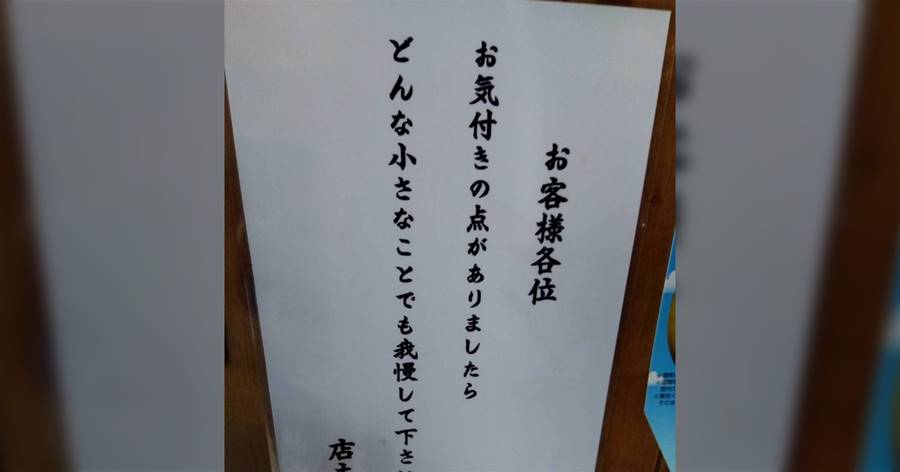 お客様各位
お気付きの点がありましたら
どんな小さなことでも我慢して下さ
店